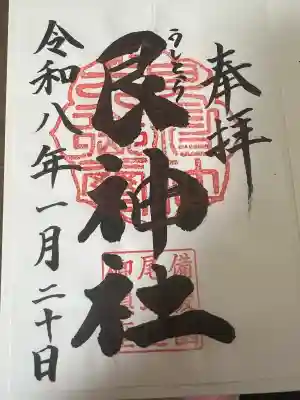 奉拝
うしとら
艮神社
令和八年一月二十日